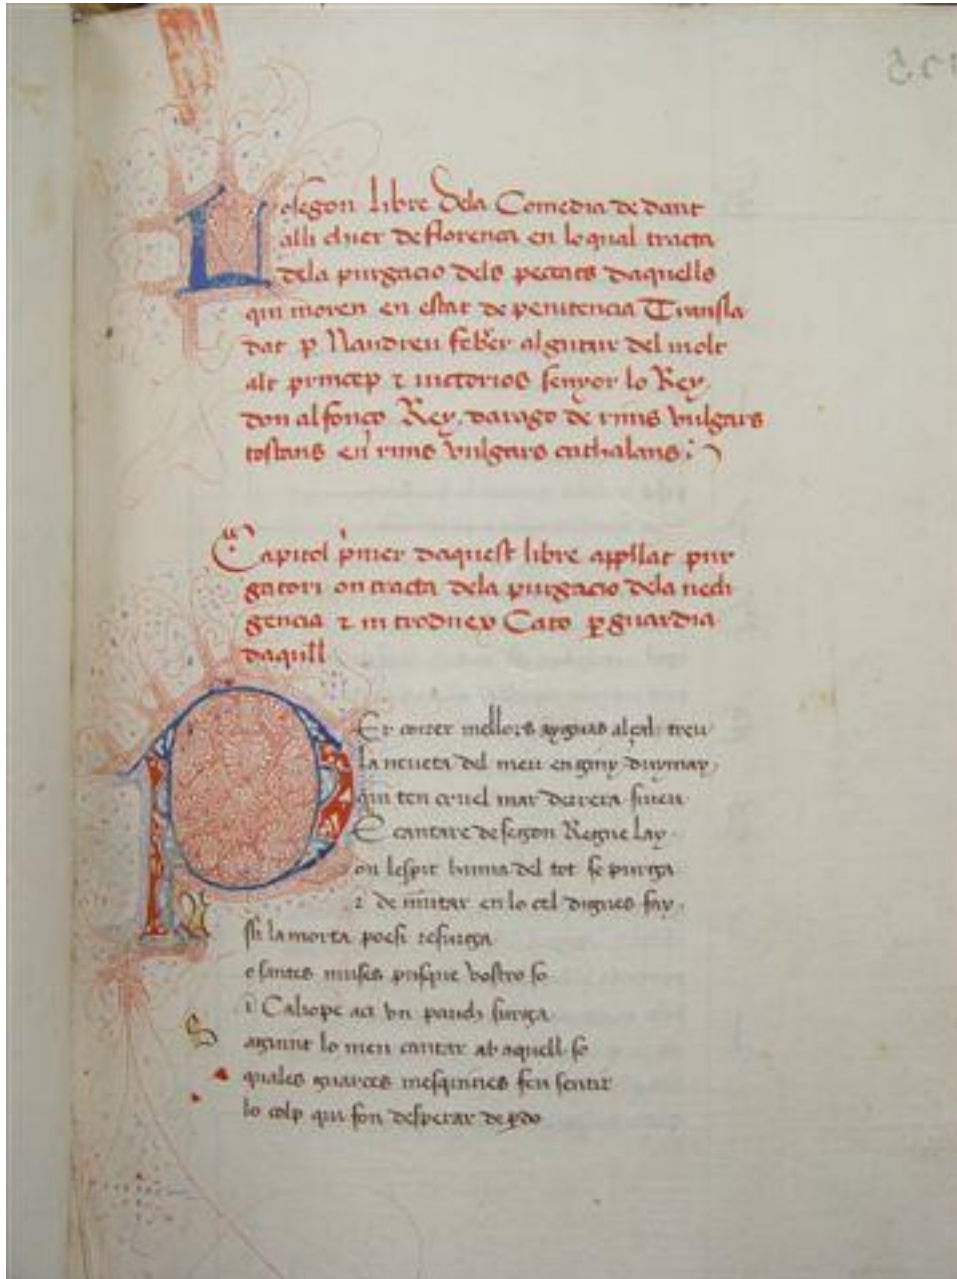 Lo segon libre dela Comedia de dant
alli de florença en lo qual tracta
dela purgacio dels peccats daquells
qui moren en estat de penitencia Transla
dat p Nandreu feb'er algutzir del molt
alt princep ⁊ victorios senyor lo Rey
don alfonço Rey darago de rims vulgars
toscans en rims vulgars cathalans
Capitol p'mer daquest libre appllat pur
gatori on tracta dela purgacio dela necli
gencia ⁊ introduex Cato p guardia
daquell
PEr correr mellors aygues alçal treu
la naueta del meu enginy duymay
qui ten cruel mar derera sineu
E cantare de segon Regne lay
on lespit huma del tot se purga
⁊ de muntar en lo cel dignes fay
Assi la morta poesi resurga
e santes muses pusque vostro so
i Caliope aci vn pauch surga
Seguint lo meu cantar ab aquell so
quales guarces mesquines feu sentir
lo colp qui fon desperar de pdo